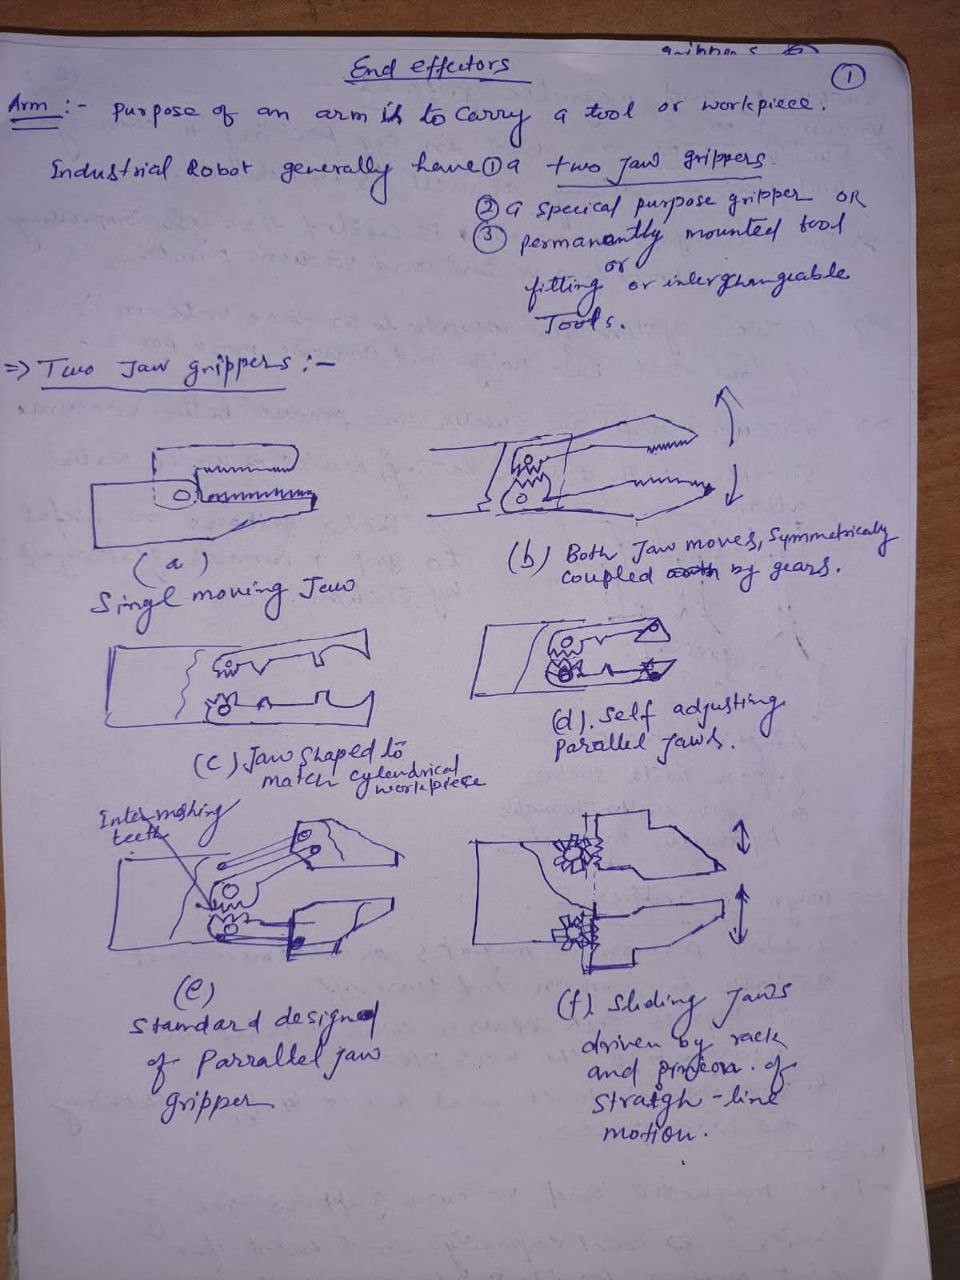 End effectors
①
Arm :- purpose of an arm is to carry a tool or workpiece.
Industrial Robot generally have ① a two jaw grippers
② a specical purpose gripper OR
③ permanantly mounted tool
or
fitting or interghangeable
Tools.
=> Two Jaw grippers :-
(a)
Singl moving Jaw
(b) Both Jaw moves, Symmetrically
coupled by gears.
(c) Jaw shaped to
match cylendrical
workpiese
(d). Self adjusting
parallel jaws.
Intermeshing
teeth
(e)
Standard designed
of Parrallel jaw
gripper
(f). Sliding Jaws
driven by rack
and pinion. of
straigh-line
motion.